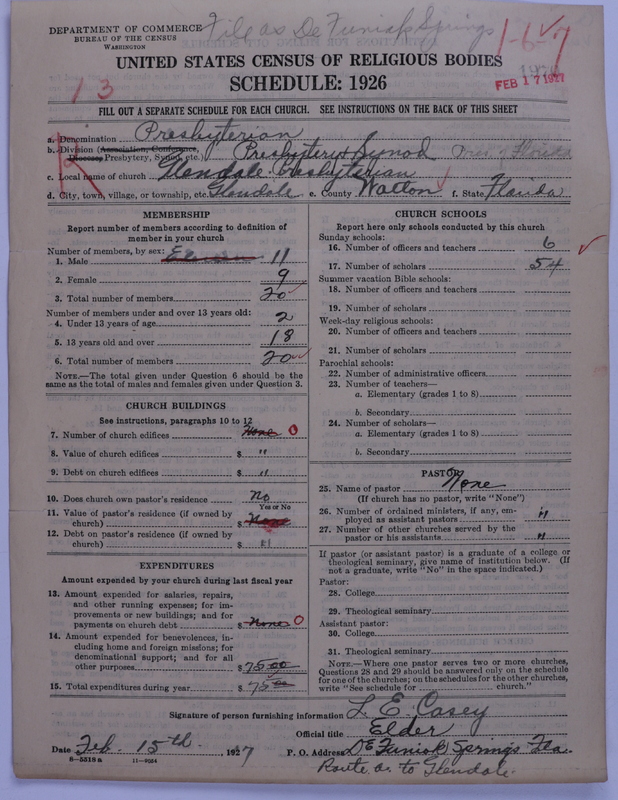 DEPARTMENT OF COMMERCE
BUREAU OF THE CENSUS
WASHINGTON
File as De Funiak Springs
1-6-7
1926
FEB 17 1927
UNITED STATES CENSUS OF RELIGIOUS BODIES
SCHEDULE: 1926
13
FILL OUT A SEPARATE SCHEDULE FOR EACH CHURCH. SEE INSTRUCTIONS ON THE BACK OF THIS SHEET
a. Denomination Presbyterian
b. Division (Association, Conference,
Diocese, Presbytery, Synod, etc. Presbytery & Synod Pres of Florida
c. Local name of church Glendale Presbyterian
d. City, town, village, or township, etc. Glendale e. County Walton f. State Florida
MEMBERSHIP
Report number of members according to definition of
member in your church
Number of members, by sex:
1. Male Eleven 11
2. Female 9
3. Total number of members 20
Number of members under and over 13 years old:
4. Under 13 years of age 2
5. 13 years old and over 18
6. Total number of members 20
NOTE.—The total given under Question 6 should be the
same as the total of males and females given under Question 3.
CHURCH BUILDINGS
See instructions, paragraphs 10 to 12
7. Number of church edifices None 0
8. Value of church edifices $ "
9. Debt on church edifices $ "
10. Does church own pastor's residence No
Yes or No
11. Value of pastor's residence (if owned by
church) $ None
12. Debt on pastor's residence (if owned by
church) $ "
EXPENDITURES
Amount expended by your church during last fiscal year
13. Amount expended for salaries, repairs,
and other running expenses; for im-
provements or new buildings; and for
payments on church debt $ None 0
14. Amount expended for benevolences, in-
cluding home and foreign missions; for
denominational support; and for all
other purposes $ 75.00
15. Total expenditures during year $ 75.00
CHURCH SCHOOLS
Report here only schools conducted by this church
Sunday schools:
16. Number of officers and teachers 6
17. Number of scholars 54
Summer vacation Bible schools:
18. Number of officers and teachers
19. Number of scholars
Week-day religious schools:
20. Number of officers and teachers
21. Number of scholars
Parochial schools:
22. Number of administrative officers
23. Number of teachers—
a. Elementary (grades 1 to 8)
b. Secondary
24. Number of scholars—
a. Elementary (grades 1 to 8)
b. Secondary
PASTOR
25. Name of pastor None
(If church has no pastor, write "None")
26. Number of ordained ministers, if any, em-
ployed as assistant pastors "
27. Number of other churches served by the
pastor or his assistants "
If pastor (or assistant pastor) is a graduate of a college or
theological seminary, give name of institution below. (If
not a graduate, write "No" in the space indicated.)
Pastor:
28. College
29. Theological seminary
Assistant pastor:
30. College
31. Theological seminary
NOTE.—Where one pastor serves two or more churches,
Questions 28 and 29 should be answered only on the schedule
for one of the churches; on the schedules for the other churches,
write "See schedule for church."
Signature of person furnishing information L. E. Casey
Official title Elder
Date Feb. 15th. 1927 P. O. Address De Funiak Springs Fla.
8-5518 a 11-9024
Route a. to Glendale.